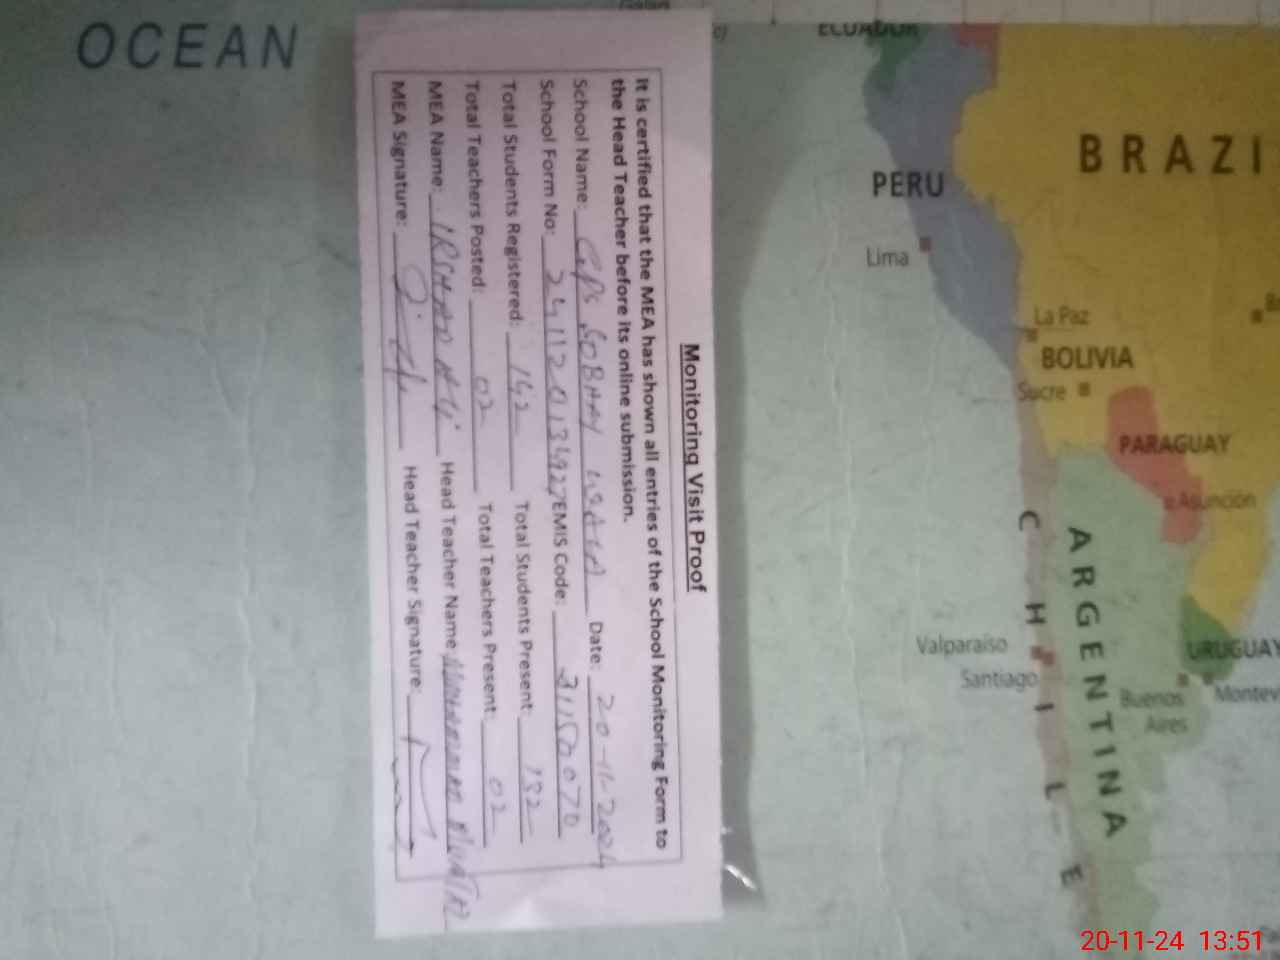 Monitoring Visit Proof
It is certified that the MEA has shown all entries of the School Monitoring Form to
the Head Teacher before its online submission.
School Name: GPS SOBHAY Date: 20-11-2024
School Form No: EMIS Code:
Total Students Registered: 142 Total Students Present: 132
Total Teachers Posted: 02 Total Teachers Present: 02
MEA Name: IRSHAD ALI Head Teacher Name MUHAMMAD
MEA Signature: Head Teacher Signature:
OCEAN
ECUADOR
BRAZI
PERU
Lima
La Paz
BOLIVIA
Sucre
PARAGUAY
Asunción
CHILE
ARGENTINA
Valparaíso
Santiago
URUGUAY
Buenos
Aires
Montev
20-11-24 13:51